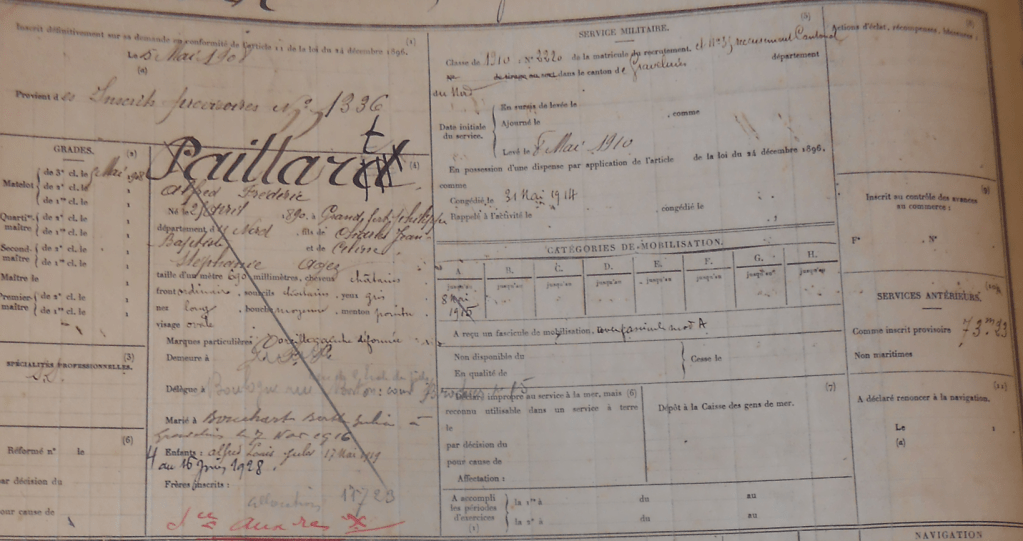 Inscrit définitivement sur sa demande en conformité de l'article 11 de la loi du 24 décembre 1896. (1)
Le 5 Mai 1908
(a)
Provient des Inscrits provisoires N° 1336
GRADES. (2)
Matelot de 3e cl. le Mai
de 2e cl. le
de 1re cl. le
Quartr-maître de 2e cl. le
de 1re cl. le
Second-maître de 2e cl. le
de 1re cl. le
Maître le
Premier-maître de 2e cl. le
de 1re cl. le
SPÉCIALITÉS PROFESSIONNELLES. (3)
(6)
Réformé n° le
par décision du
pour cause de
Paillard (4)
Alfred Frédéric
Né le 2 Avril 1890 à Grand fort Philippe
département du Nord, fils de
Baptiste et de
Stéphanie
taille d'un mètre 690 millimètres, cheveux châtains
front ordinaire, sourcils châtains, yeux gris
nez long, bouche moyenne, menton pointu
visage ovale
Marques particulières: Oreille gauche déformée
Demeure à
Délégué à
Marié à
le 7 Nov 1916
Enfants: Alfred Louis Jules 17 Mai 1919
4 au 16 Juin 1928.
Frères inscrits:
allocations 17/23
SERVICE MILITAIRE. (5)
Classe de 1910 N° 2220 de la matricule du recrutement
dans le canton de Gravelines département
du Nord
Date initiale du service.
En sursis de levée le
Ajourné le, comme
Levé le 8 Mai 1910
En possession d'une dispense par application de l'article de la loi du 24 décembre 1896,
comme
Congédié le 31 Mai 1914
Rappelé à l'activité le, congédié le
CATÉGORIES DE MOBILISATION.
A. B. C. D. E. F. G. H.
jusqu'au jusqu'au jusqu'au jusqu'au jusqu'au jusqu'au jusqu'au jusqu'au
8 mai
1915
A reçu un fascicule de mobilisation, un fascicule mod A
Non disponible du
En qualité de
Cesse le
Déclaré impropre au service à la mer, mais (6)
reconnu utilisable dans un service à terre
le
par décision du
pour cause de
Affectation:
(7)
Dépôt à la Caisse des gens de mer.
A accompli les périodes d'exercices (1)
la 1re à du au
la 2e à du au
Actions d'éclat, récompenses, blessures: (8)
(9)
Inscrit au contrôle des avances
au commerce:
F° . N°
SERVICES ANTÉRIEURS.
Comme inscrit provisoire 73m 23
Non maritimes
A déclaré renoncer à la navigation.
Le
(a)
NAVIGATION